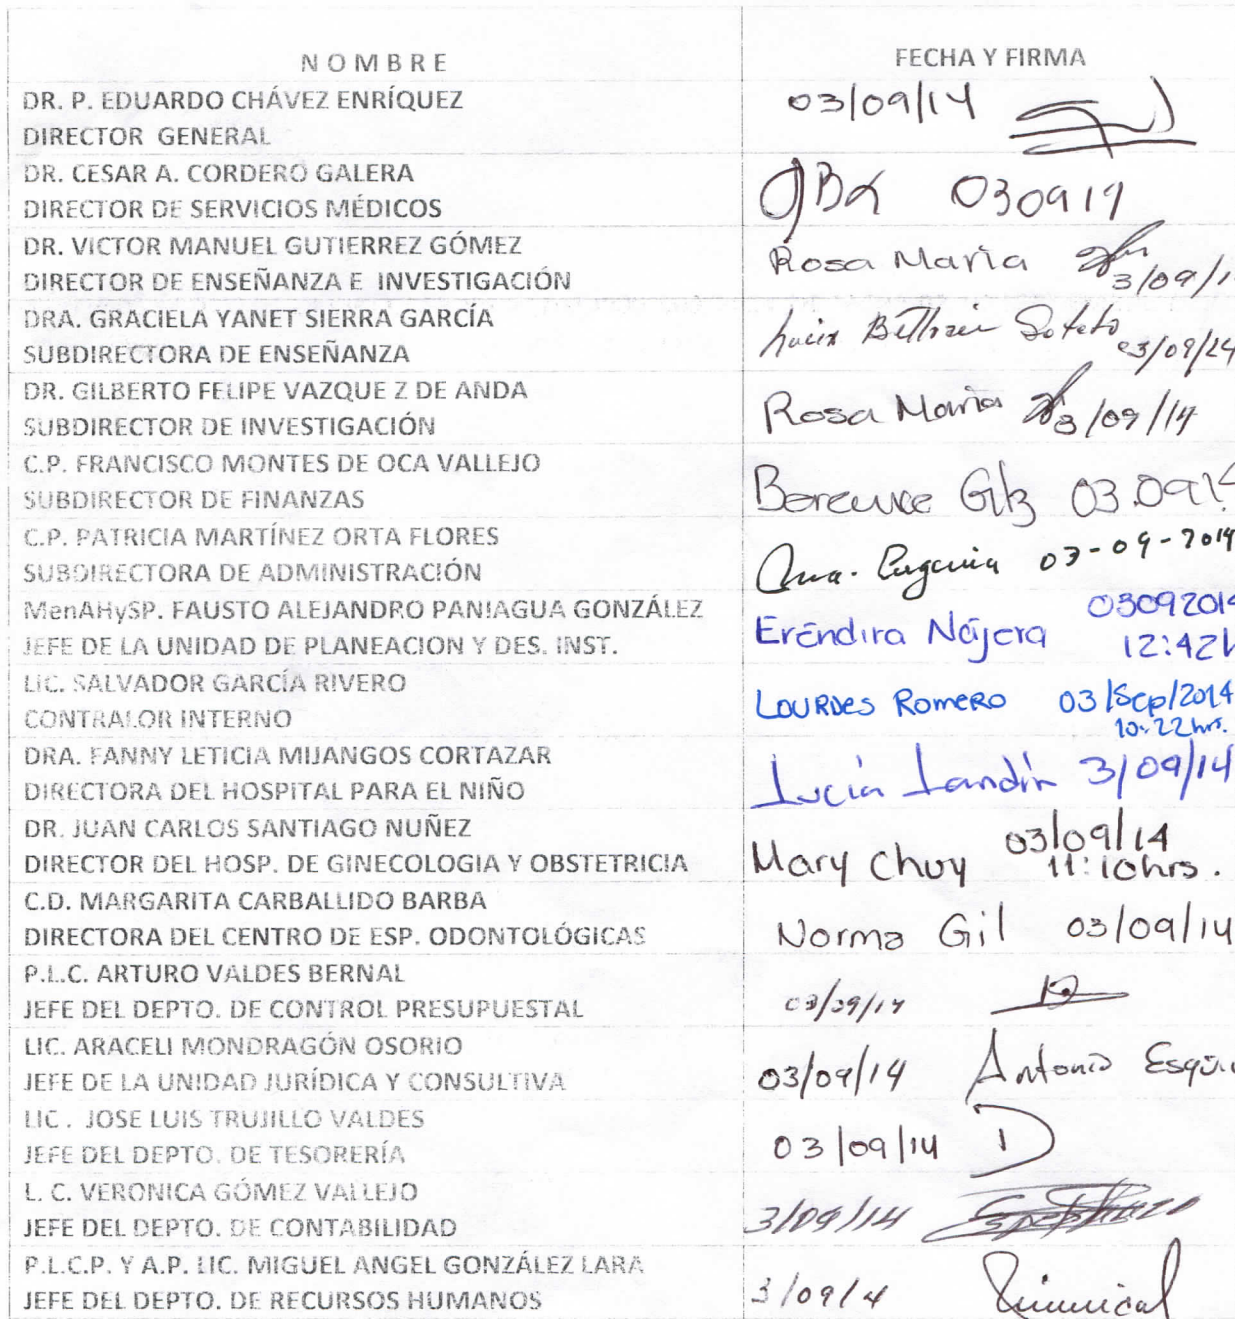 NOMBRE
FECHA Y FIRMA
DR. P. EDUARDO CHÁVEZ ENRÍQUEZ
DIRECTOR GENERAL
03/09/14
DR. CESAR A. CORDERO GALERA
DIRECTOR DE SERVICIOS MÉDICOS
030914
DR. VICTOR MANUEL GUTIERREZ GÓMEZ
DIRECTOR DE ENSEÑANZA E INVESTIGACIÓN
Rosa Maria
3/09/1
DRA. GRACIELA YANET SIERRA GARCÍA
SUBDIRECTORA DE ENSEÑANZA
03/09/14
DR. GILBERTO FELIPE VAZQUE Z DE ANDA
SUBDIRECTOR DE INVESTIGACIÓN
Rosa Maria 3/09/14
C.P. FRANCISCO MONTES DE OCA VALLEJO
SUBDIRECTOR DE FINANZAS
Berenice Gtz 03.0914
C.P. PATRICIA MARTÍNEZ ORTA FLORES
SUBDIRECTORA DE ADMINISTRACIÓN
Ana. Eugenia 03-09-2014
MenAHySP. FAUSTO ALEJANDRO PANIAGUA GONZÁLEZ
JEFE DE LA UNIDAD DE PLANEACION Y DES. INST.
Eréndira Nájera 03092014
12:42h
LIC. SALVADOR GARCÍA RIVERO
CONTRALOR INTERNO
LOURDES ROMERO 03/Sep/2014
10:22hrs.
DRA. FANNY LETICIA MIJANGOS CORTAZAR
DIRECTORA DEL HOSPITAL PARA EL NIÑO
Lucía Landín 3/09/14
DR. JUAN CARLOS SANTIAGO NUÑEZ
DIRECTOR DEL HOSP. DE GINECOLOGIA Y OBSTETRICIA
Mary Chuy 03/09/14
11:10hrs.
C.D. MARGARITA CARBALLIDO BARBA
DIRECTORA DEL CENTRO DE ESP. ODONTOLÓGICAS
Norma Gil 03/09/14
P.L.C. ARTURO VALDES BERNAL
JEFE DEL DEPTO. DE CONTROL PRESUPUESTAL
03/09/14
LIC. ARACELI MONDRAGÓN OSORIO
JEFE DE LA UNIDAD JURÍDICA Y CONSULTIVA
03/09/14 Antonio
LIC. JOSE LUIS TRUJILLO VALDES
JEFE DEL DEPTO. DE TESORERÍA
03/09/14
L. C. VERONICA GÓMEZ VALLEJO
JEFE DEL DEPTO. DE CONTABILIDAD
3/09/14
P.L.C.P. Y A.P. LIC. MIGUEL ANGEL GONZÁLEZ LARA
JEFE DEL DEPTO. DE RECURSOS HUMANOS
3/09/4